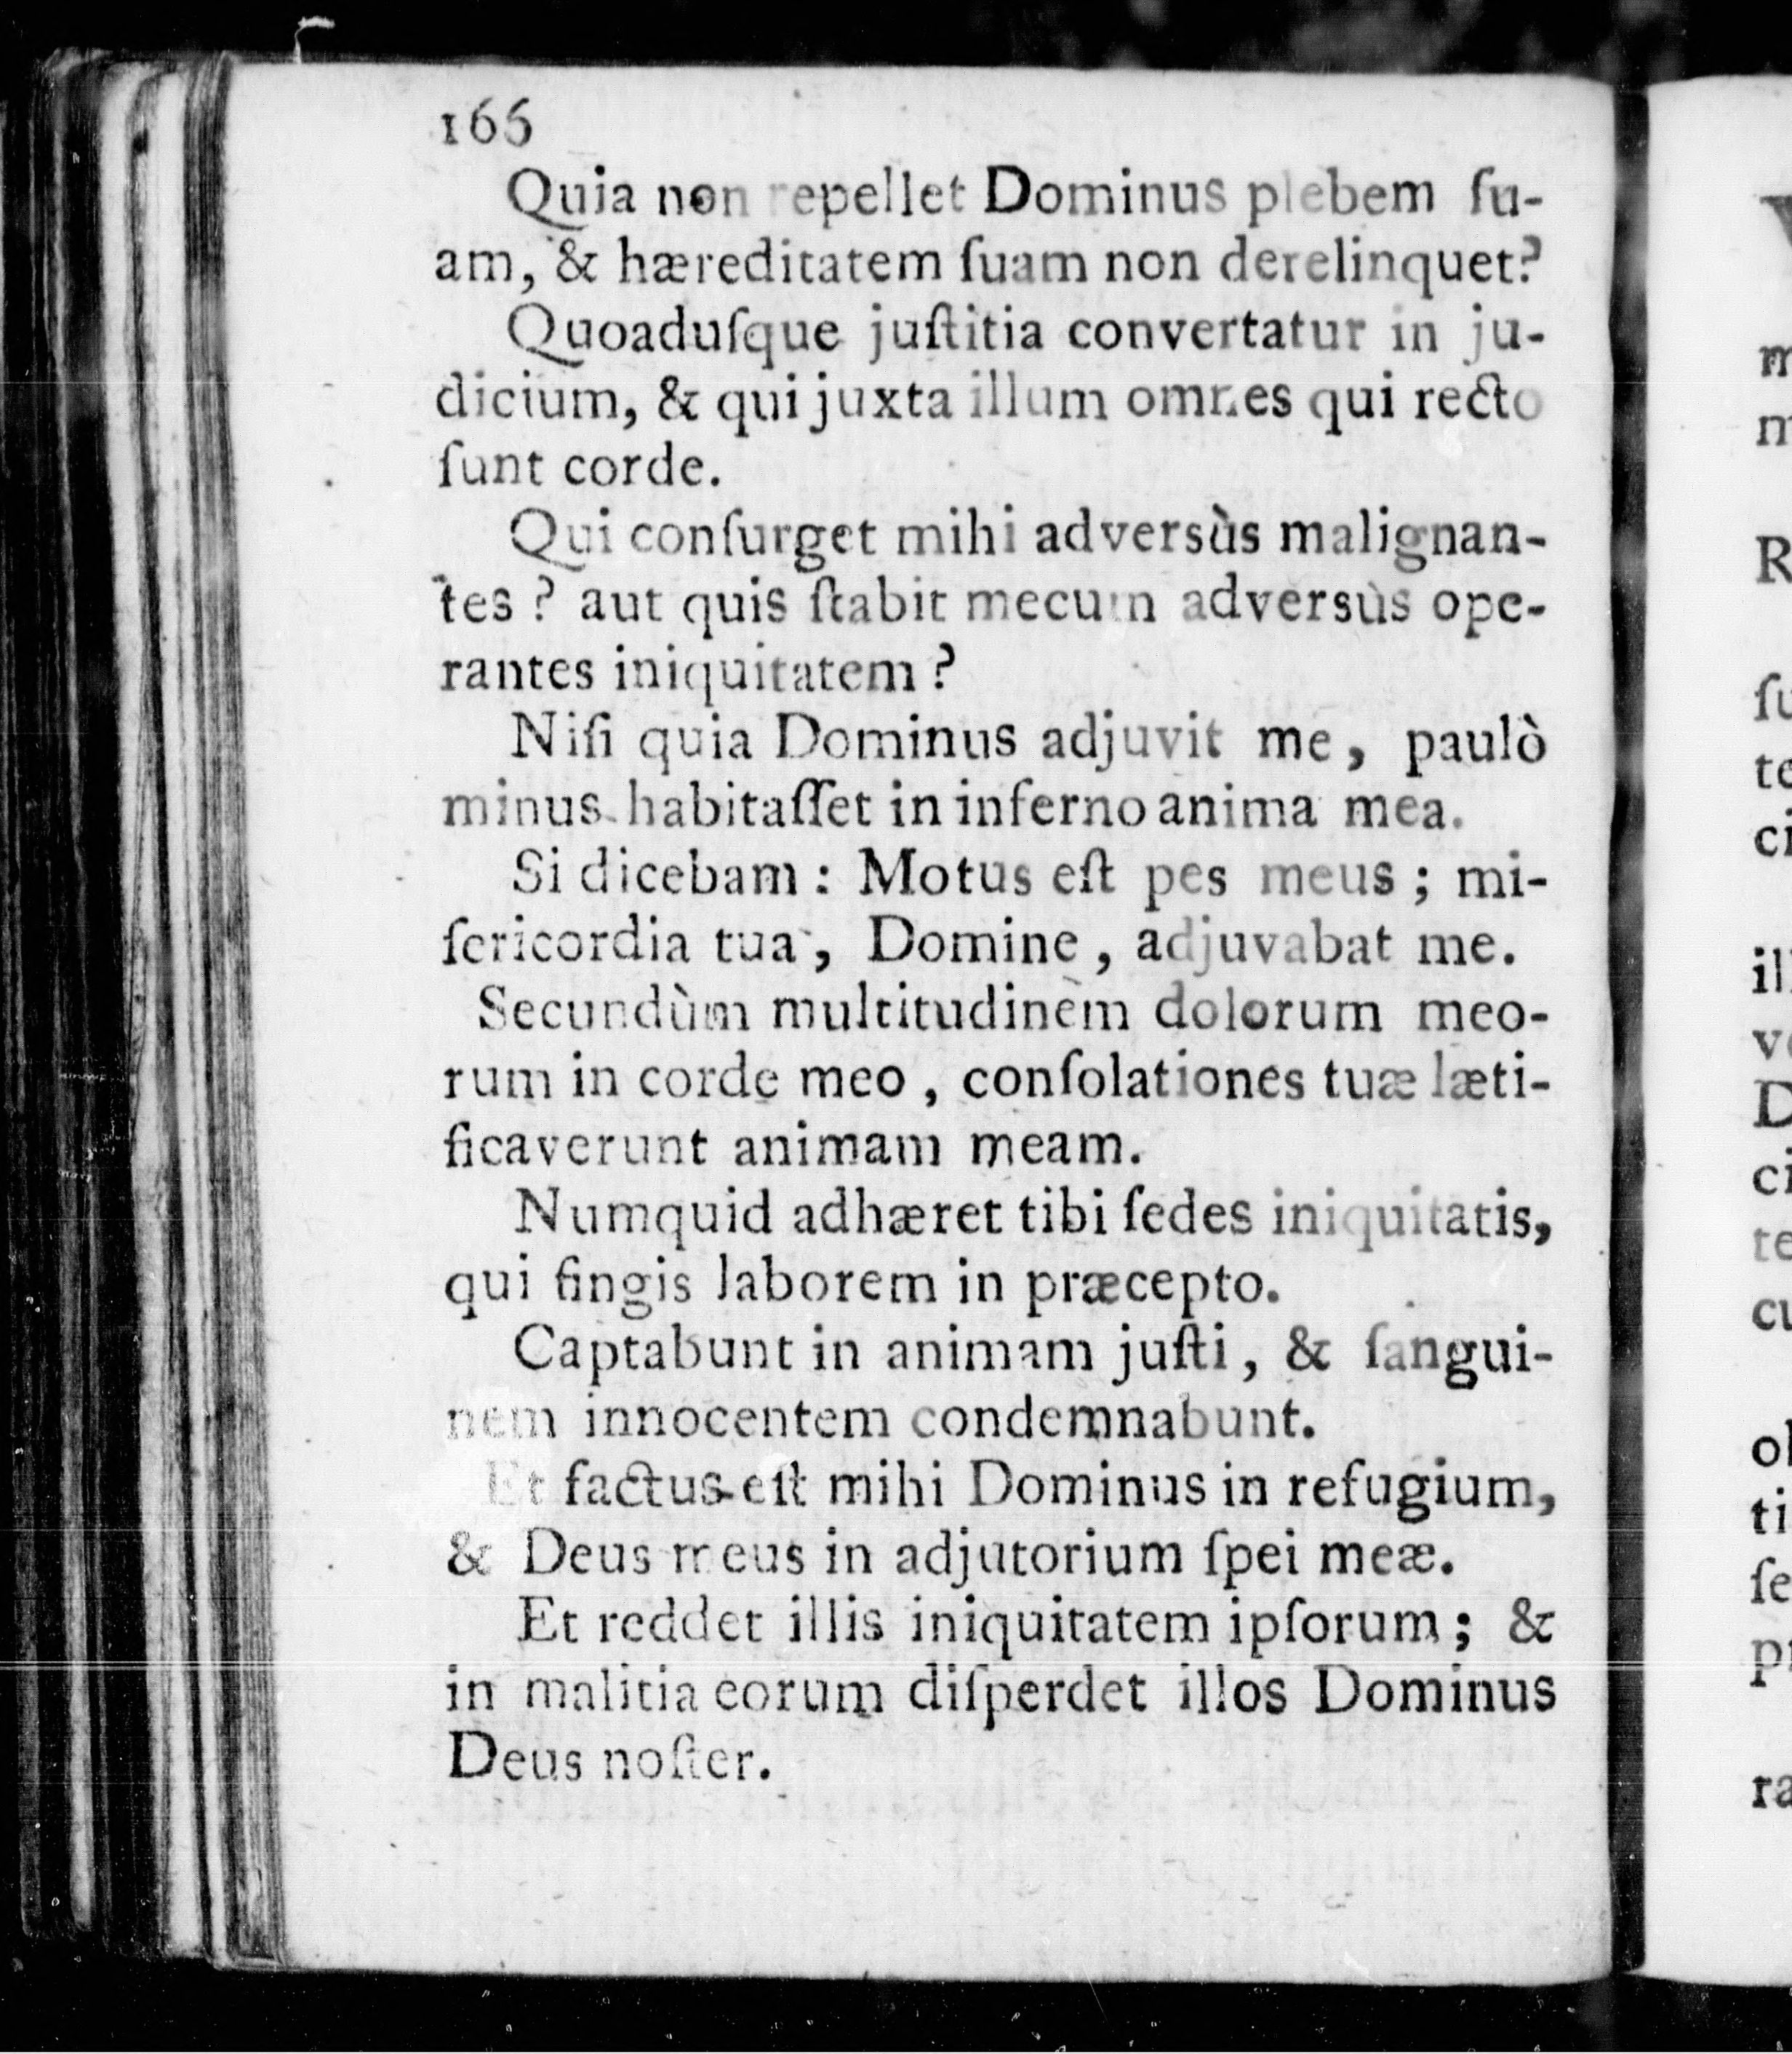 166
Quia non repellet Dominus plebem ſu-
am, & hæreditatem ſuam non derelinquet?
Quoaduſque juſtitia convertatur in ju-
dicium, & qui juxta illum omnes qui recto
ſunt corde.
Qui conſurget mihi adversùs malignan-
tes ? aut quis ſtabit mecum adversùs ope-
rantes iniquitatem ?
Niſi quia Dominus adjuvit me, paulò
minus habitaſſet in inferno anima mea.
Si dicebam : Motus eſt pes meus ; mi-
ſericordia tua, Domine, adjuvabat me.
Secundùm multitudinem dolorum meo-
rum in corde meo, conſolationes tuæ læti-
ficaverunt animam meam.
Numquid adhæret tibi ſedes iniquitatis,
qui fingis laborem in præcepto.
Captabunt in animam juſti, & ſangui-
nem innocentem condemnabunt.
Et factus eſt mihi Dominus in refugium,
& Deus meus in adjutorium ſpei meæ.
Et reddet illis iniquitatem ipſorum ; &
in malitia eorum diſperdet illos Dominus
Deus noſter.